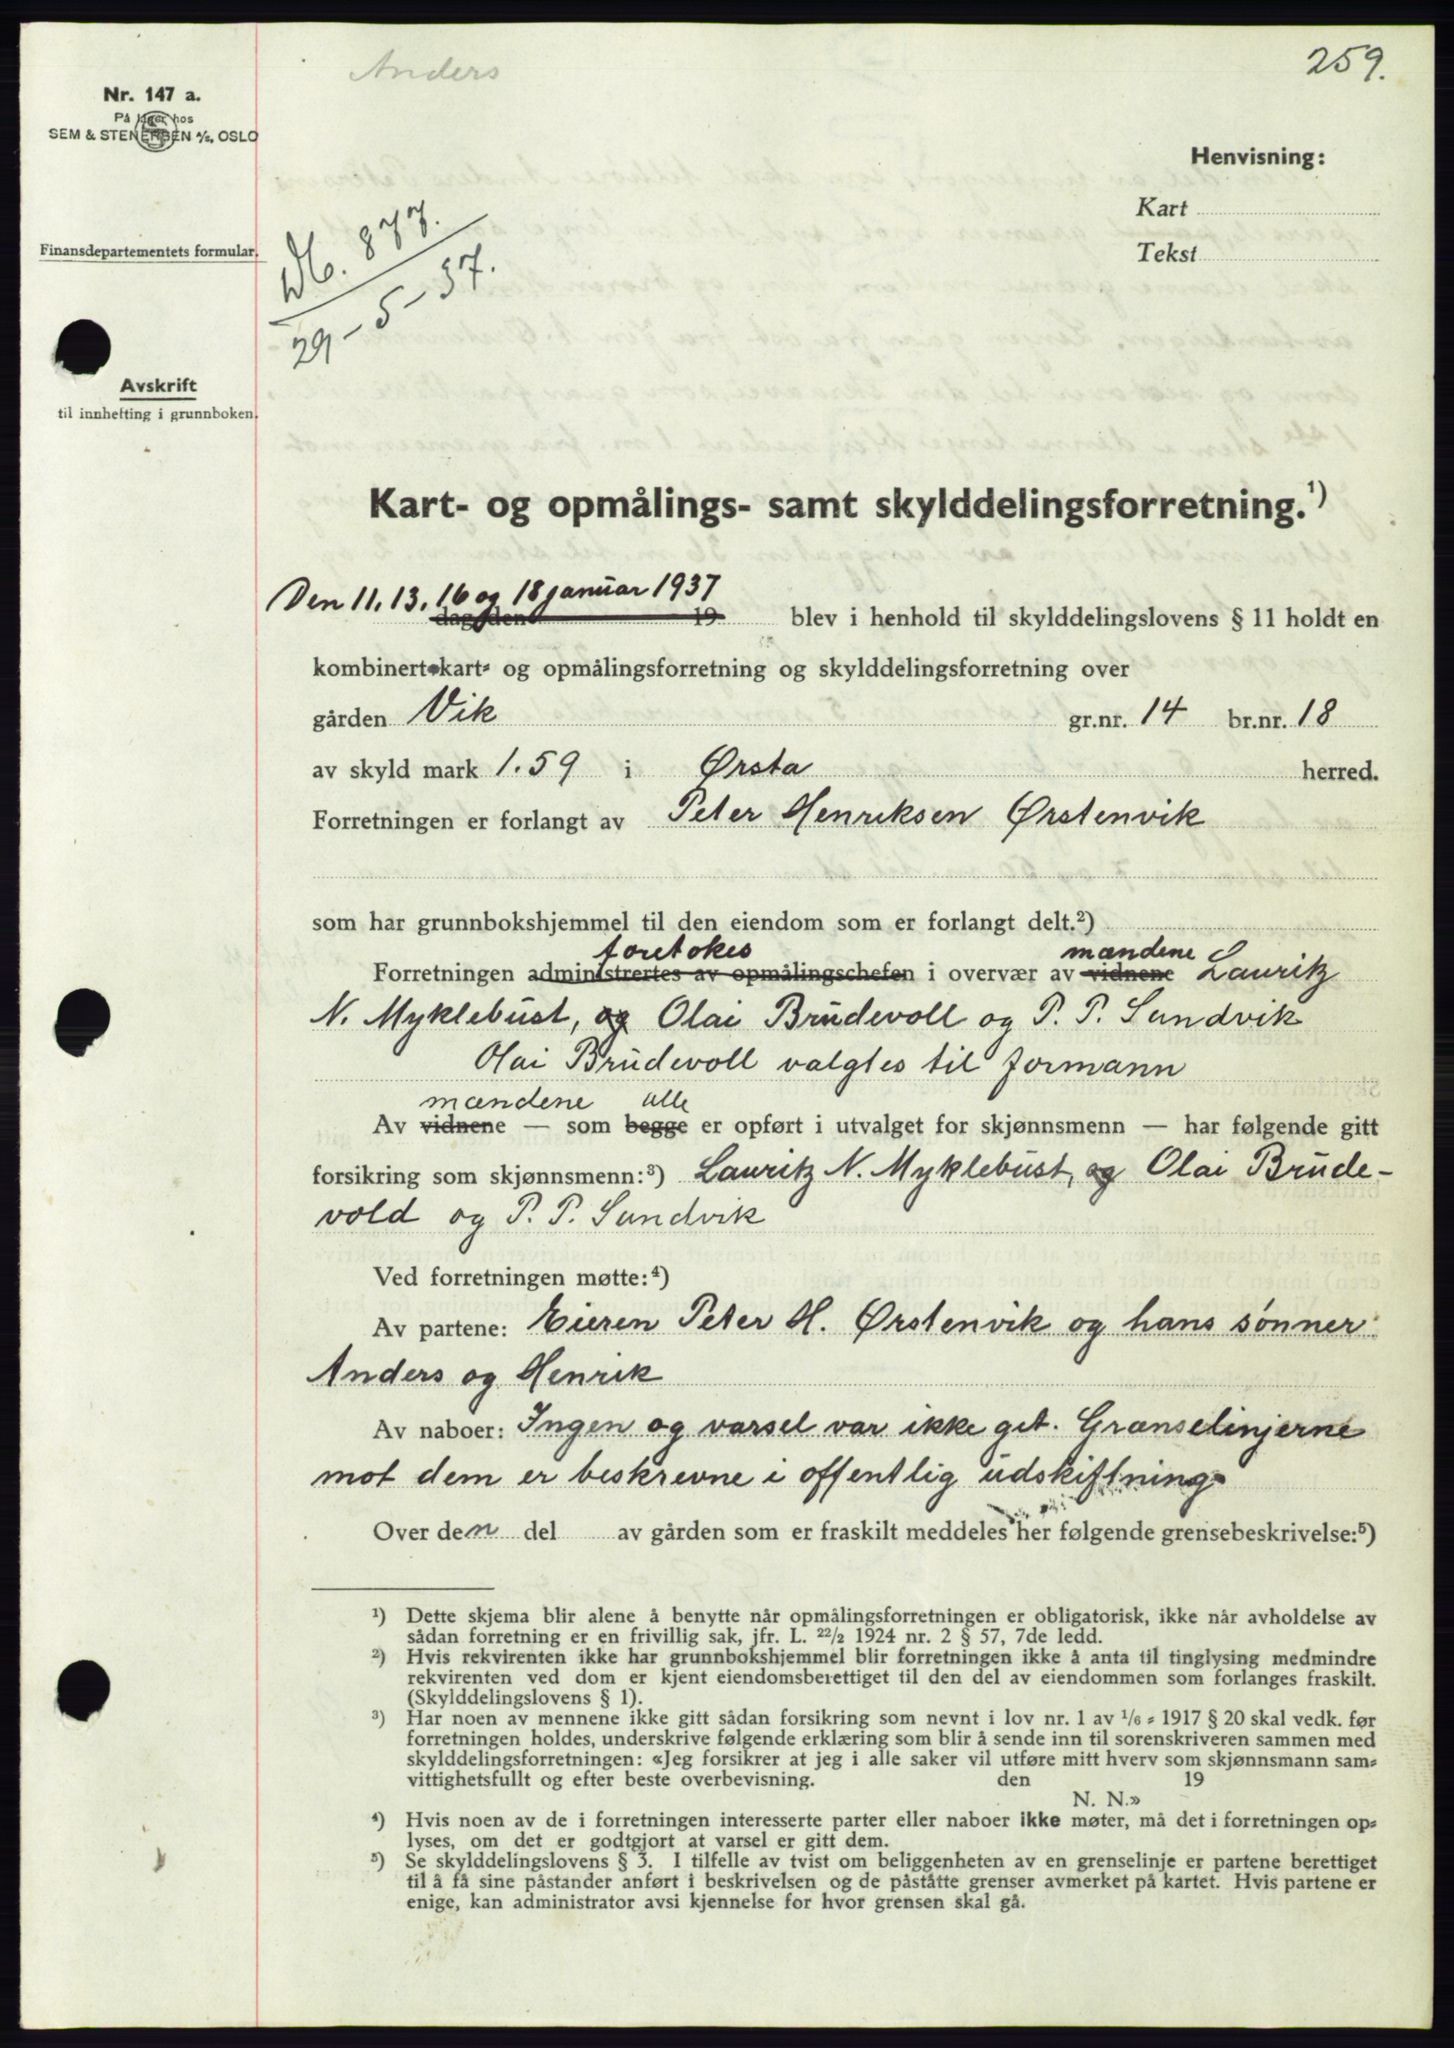 Anders
259.
Nr. 147 a.
På lager hos
SEM & STENERSEN A/S, OSLO
Henvisning:
Kart
Tekst
Finansdepartementets formular.
Db. 877.
29-5-37.
Avskrift
til innhefting i grunnboken.
Kart- og opmålings- samt skylddelingsforretning.¹)
Den 11, 13, 16 og 18 januar 1937
dag den 19 blev i henhold til skylddelingslovens § 11 holdt en
kombinert kart- og opmålingsforretning og skylddelingsforretning over
gården Vik gr.nr. 14 br.nr. 18
av skyld mark 1.59 i Ørsta herred.
Forretningen er forlangt av Peter Henriksen Ørstenvik
som har grunnbokshjemmel til den eiendom som er forlangt delt.²)
foretokes mændene
Forretningen administrertes av opmålingschefen i overvær av vidnene Lauritz
N. Myklebust, og Olai Brudevoll og P. P. Sundvik
Olai Brudevoll valgtes til formann
mændene alle
Av vidnene — som begge er opført i utvalget for skjønnsmenn — har følgende gitt
forsikring som skjønnsmenn:³) Lauritz N. Myklebust, og Olai Brude-
vold og P. P. Sundvik
Ved forretningen møtte:⁴)
Av partene: Eieren Peter H. Ørstenvik og hans sønner
Anders og Henrik
Av naboer: Ingen og varsel var ikke get. Grænselinjerne
mot dem er beskrevne i offentlig udskiftning.
Over den del av gården som er fraskilt meddeles her følgende grensebeskrivelse:⁵)
¹) Dette skjema blir alene å benytte når opmålingsforretningen er obligatorisk, ikke når avholdelse av
sådan forretning er en frivillig sak, jfr. L. 22/2 1924 nr. 2 § 57, 7de ledd.
²) Hvis rekvirenten ikke har grunnbokshjemmel blir forretningen ikke å anta til tinglysing medmindre
rekvirenten ved dom er kjent eiendomsberettiget til den del av eiendommen som forlanges fraskilt.
(Skylddelingslovens § 1).
³) Har noen av mennene ikke gitt sådan forsikring som nevnt i lov nr. 1 av 1/6 - 1917 § 20 skal vedk. før
forretningen holdes, underskrive følgende erklæring som blir å sende inn til sorenskriveren sammen med
skylddelingsforretningen: «Jeg forsikrer at jeg i alle saker vil utføre mitt hverv som skjønnsmann sam-
vittighetsfullt og efter beste overbevisning. den 19
N. N.»
⁴) Hvis noen av de i forretningen interesserte parter eller naboer ikke møter, må det i forretningen op-
lyses, om det er godtgjort at varsel er gitt dem.
⁵) Se skylddelingslovens § 3. I tilfelle av tvist om beliggenheten av en grenselinje er partene berettiget
til å få sine påstander anført i beskrivelsen og de påståtte grenser avmerket på kartet. Hvis partene er
enige, kan administrator avsi kjennelse for hvor grensen skal gå.